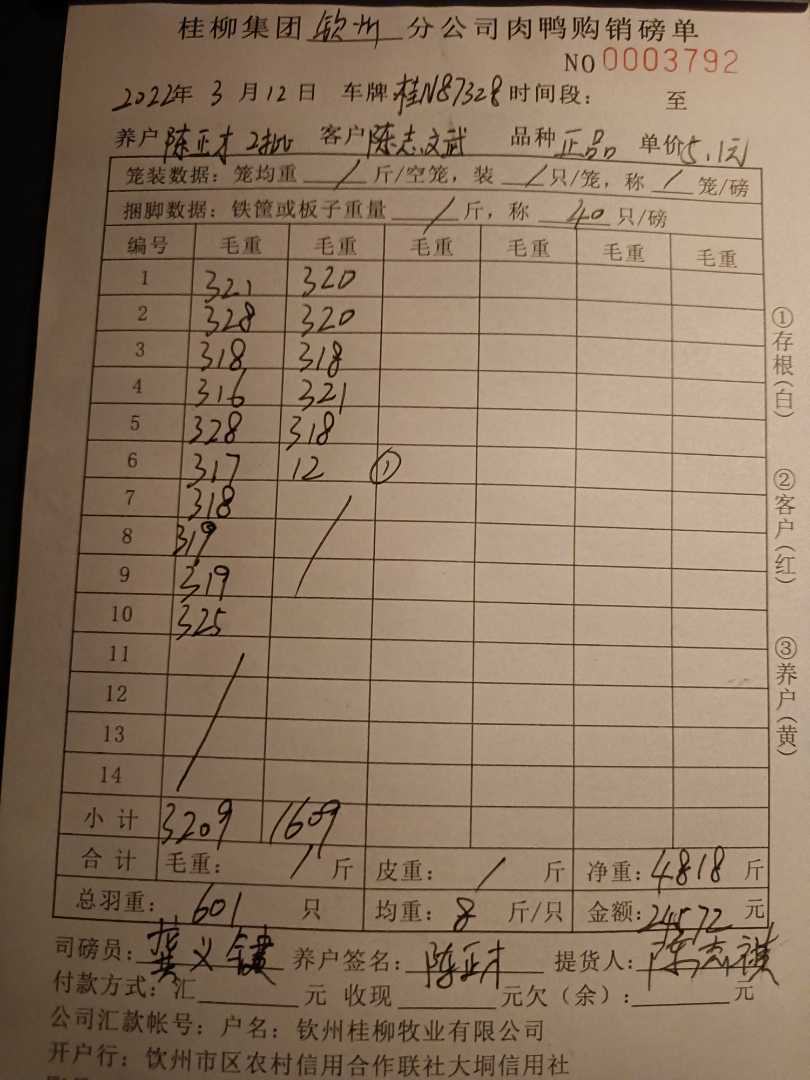 桂柳集团 钦州 分公司肉鸭购销磅单
NO 0003792
2022年 3 月 12 日 车牌 桂N87328 时间段: 至
养户 陈正才 2批 客户 陈志文武 品种 正品 单价 5.1元
笼装数据: 笼均重 / 斤/空笼, 装 / 只/笼, 称 / 笼/磅
捆脚数据: 铁筐或板子重量 / 斤, 称 40 只/磅
编号 毛重 毛重 毛重 毛重 毛重 毛重
1 321 320
2 328 320
3 318 318
4 316 321
5 328 318
6 317 12 ①
7 318 /
8 319
9 319
10 325
11 /
12
13
14
小计 3209 1609
合计 毛重: / 斤 皮重: / 斤 净重: 4818 斤
总羽重: 601 只 均重: 8 斤/只 金额: 24572 元
司磅员: 龚义健 养户签名: 陈正才 提货人: 陈志祺
付款方式: 汇 元 收现 元欠(余): 元
公司汇款帐号: 户名: 钦州桂柳牧业有限公司
开户行: 钦州市区农村信用合作联社大垌信用社
①存根(白)
②客户(红)
③养户(黄)